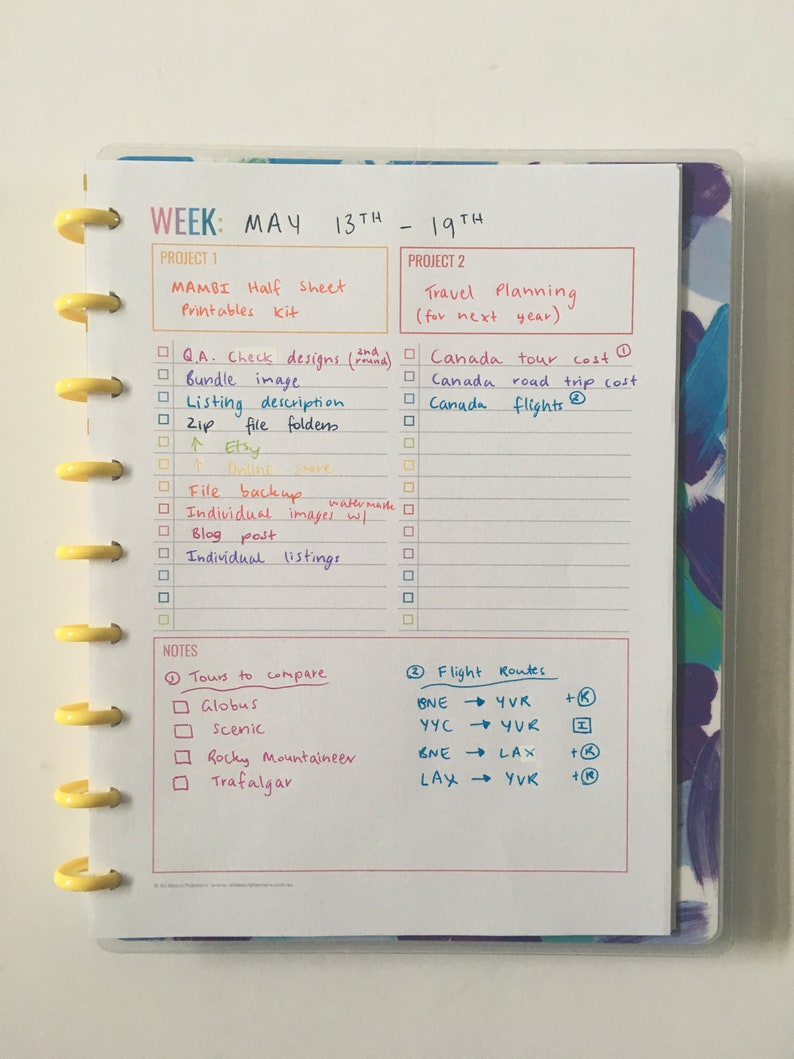 WEEK: MAY 13TH - 19TH
PROJECT 1
MAMBI Half Sheet
Printables Kit
PROJECT 2
Travel Planning
(for next year)
Q.A. Check designs (2nd round)
Bundle image
Listing description
Zip file folders
↑ Etsy
↑ Online store
File backup
Individual images w/ watermark
Blog post
Individual listings
Canada tour cost ①
Canada road trip cost
Canada flights ②
NOTES
① Tours to compare
Globus
Scenic
Rocky Mountaineer
Trafalgar
② Flight Routes
BNE → YVR +Ⓡ
YYC → YVR I
BNE → LAX +Ⓡ
LAX → YVR +Ⓡ
© All About Planners www.allaboutplanners.com.au